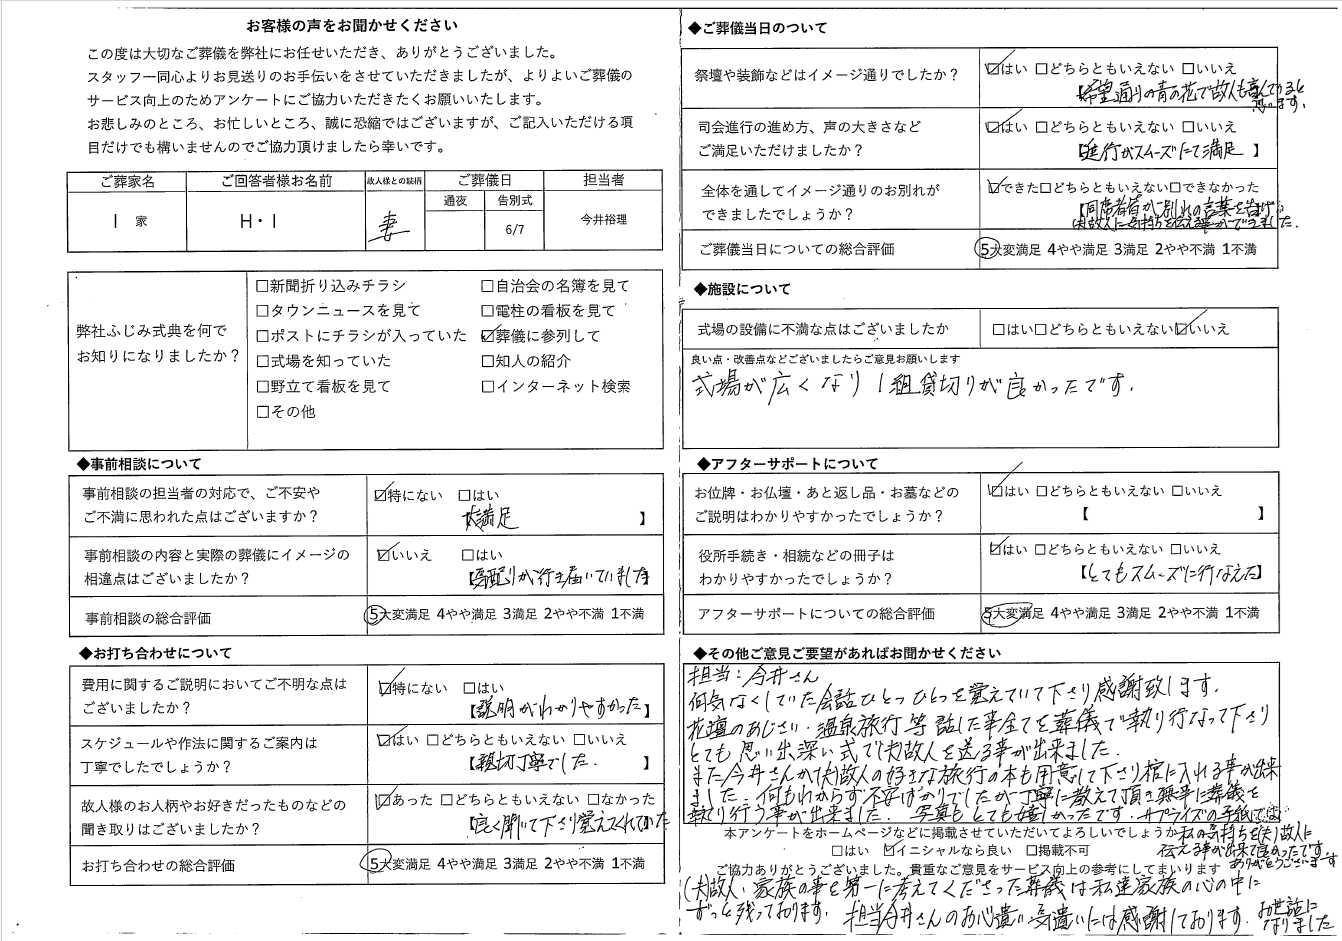 お客様の声をお聞かせください
この度は大切なご葬儀を弊社にお任せいただき、ありがとうございました。
スタッフ一同心よりお見送りのお手伝いをさせていただきましたが、よりよいご葬儀の
サービス向上のためアンケートにご協力いただきたくお願いいたします。
お悲しみのところ、お忙しいところ、誠に恐縮ではございますが、ご記入いただける項
目だけでも構いませんのでご協力頂けましたら幸いです。
ご葬家名 ご回答者様お名前 故人様との続柄 ご葬儀日 担当者
通夜 告別式
I 家 H・I 妻 6/7 今井裕理
弊社ふじみ式典を何で
お知りになりましたか？
□新聞折り込みチラシ □自治会の名簿を見て
□タウンニュースを見て □電柱の看板を見て
□ポストにチラシが入っていた ☑葬儀に参列して
□式場を知っていた □知人の紹介
□野立て看板を見て □インターネット検索
□その他
◆事前相談について
事前相談の担当者の対応で、ご不安や
ご不満に思われた点はございますか？
☑特にない □はい
大満足 】
事前相談の内容と実際の葬儀にイメージの
相違点はございましたか？
☑いいえ □はい
【気配りが行き届いていました
事前相談の総合評価 5大変満足 4やや満足 3満足 2やや不満 1不満
◆お打ち合わせについて
費用に関するご説明においてご不明な点は
ございましたか？
☑特にない □はい
【説明がわかりやすかった】
スケジュールや作法に関するご案内は
丁寧でしたでしょうか？
☑はい □どちらともいえない □いいえ
【親切丁寧でした. 】
故人様のお人柄やお好きだったものなどの
聞き取りはございましたか？
☑あった □どちらともいえない □なかった
【良く聞いて下さり覚えてくれていた
お打ち合わせの総合評価 5大変満足 4やや満足 3満足 2やや不満 1不満
◆ご葬儀当日のついて
祭壇や装飾などはイメージ通りでしたか？
☑はい □どちらともいえない □いいえ
【希望通りの青の花で故人も喜んでいると
思います.
司会進行の進め方、声の大きさなど
ご満足いただけましたか？
☑はい □どちらともいえない □いいえ
【進行がスムーズにて満足 】
全体を通してイメージ通りのお別れが
できましたでしょうか？
☑できた□どちらともいえない□できなかった
【同席者皆がお別れの言葉を告げ
(夫)故人に気持ちを伝える事ができました.
ご葬儀当日についての総合評価 5大変満足 4やや満足 3満足 2やや不満 1不満
◆施設について
式場の設備に不満な点はございましたか □はい□どちらともいえない☑いいえ
良い点・改善点などございましたらご意見お願いします
式場が広くなり1組貸切りが良かったです.
◆アフターサポートについて
お位牌・お仏壇・あと返し品・お墓などの
ご説明はわかりやすかったでしょうか？
☑はい □どちらともいえない □いいえ
【 】
役所手続き・相続などの冊子は
わかりやすかったでしょうか？
☑はい □どちらともいえない □いいえ
【とてもスムーズに行なえた】
アフターサポートについての総合評価 5大変満足 4やや満足 3満足 2やや不満 1不満
◆その他ご意見ご要望があればお聞かせください
担当：今井さん
何気なくしていた会話ひとつひとつを覚えていて下さり感謝致します.
花壇のあじさい・温泉旅行等話した事全てを葬儀で執り行なって下さり
とても思い出深い式で(夫)故人を送る事が出来ました.
また今井さんが(夫)故人の好きな旅行の本も用意して下さり棺に入れる事が出来
ました. 何もわからず不安ばかりでしたが丁寧に教えて頂き無事に葬儀を
執り行う事が出来ました. 写真もとても嬉しかったです.サプライズの手紙では
本アンケートをホームページなどに掲載させていただいてよろしいでしょうか
私の気持ちを(夫)故人に
□はい ☑イニシャルなら良い □掲載不可
伝える事が出来て良かったです
ありがとうございます
ご協力ありがとうございました。貴重なご意見をサービス向上の参考にしてまいります
(夫)故人、家族の事を第一に考えてくださった葬儀は私達家族の心の中に
ずっと残っております. 担当今井さんのお心遣い気遣いには感謝しております. お世話に
なりました